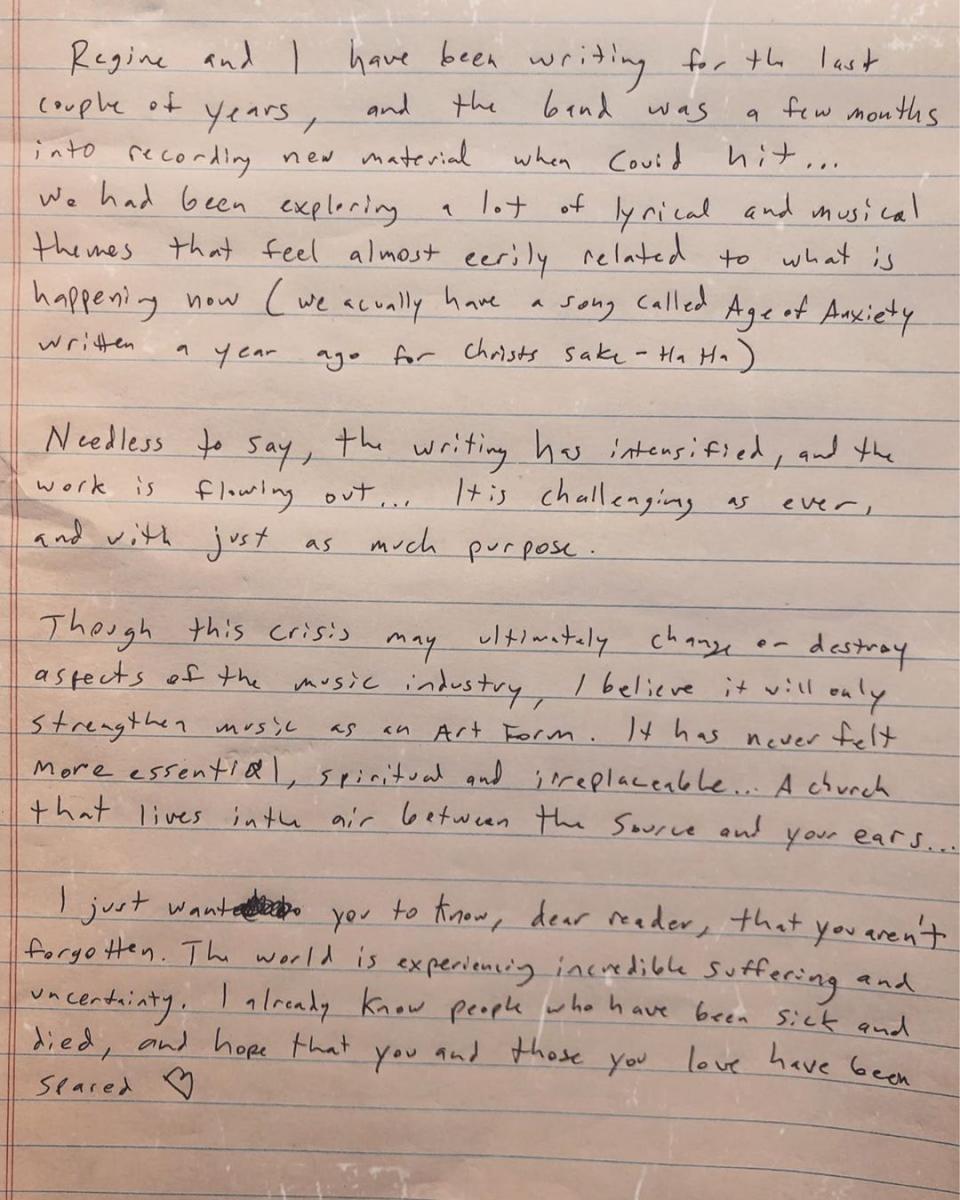 Regine and I have been writing for the last
couple of years, and the band was a few months
into recording new material when Covid hit...
We had been exploring a lot of lyrical and musical
themes that feel almost eerily related to what is
happening now (we acually have a song called Age of Anxiety
written a year ago for Christs sake - Ha Ha)
Needless to say, the writing has intensified, and the
work is flowing out... It is challenging as ever,
and with just as much purpose.
Though this crisis may ultimately change or destroy
aspects of the music industry, I believe it will only
strengthen music as an Art Form. It has never felt
more essential, spiritual and irreplaceable... A church
that lives in the air between the Source and your ears...
I just want you to know, dear reader, that you aren't
forgotten. The world is experiencing incredible suffering and
uncertainty. I already know people who have been sick and
died, and hope that you and those you love have been
spared ♡